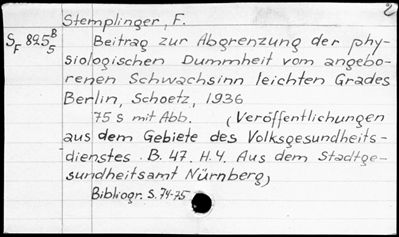 2
Stemplinger, F.
S F 895 B 5 Beitrag zur Abgrenzung der phy-
siologischen Dummheit vom angebo-
renen Schwachsinn leichten Grades
Berlin, Schoetz, 1936
75 S mit Abb. (Veröffentlichungen
aus dem Gebiete des Volksgesundheits-
dienstes. B. 47. H. 4. Aus dem Stadtge-
sundheitsamt Nürnberg)
Bibliogr. S. 74-75